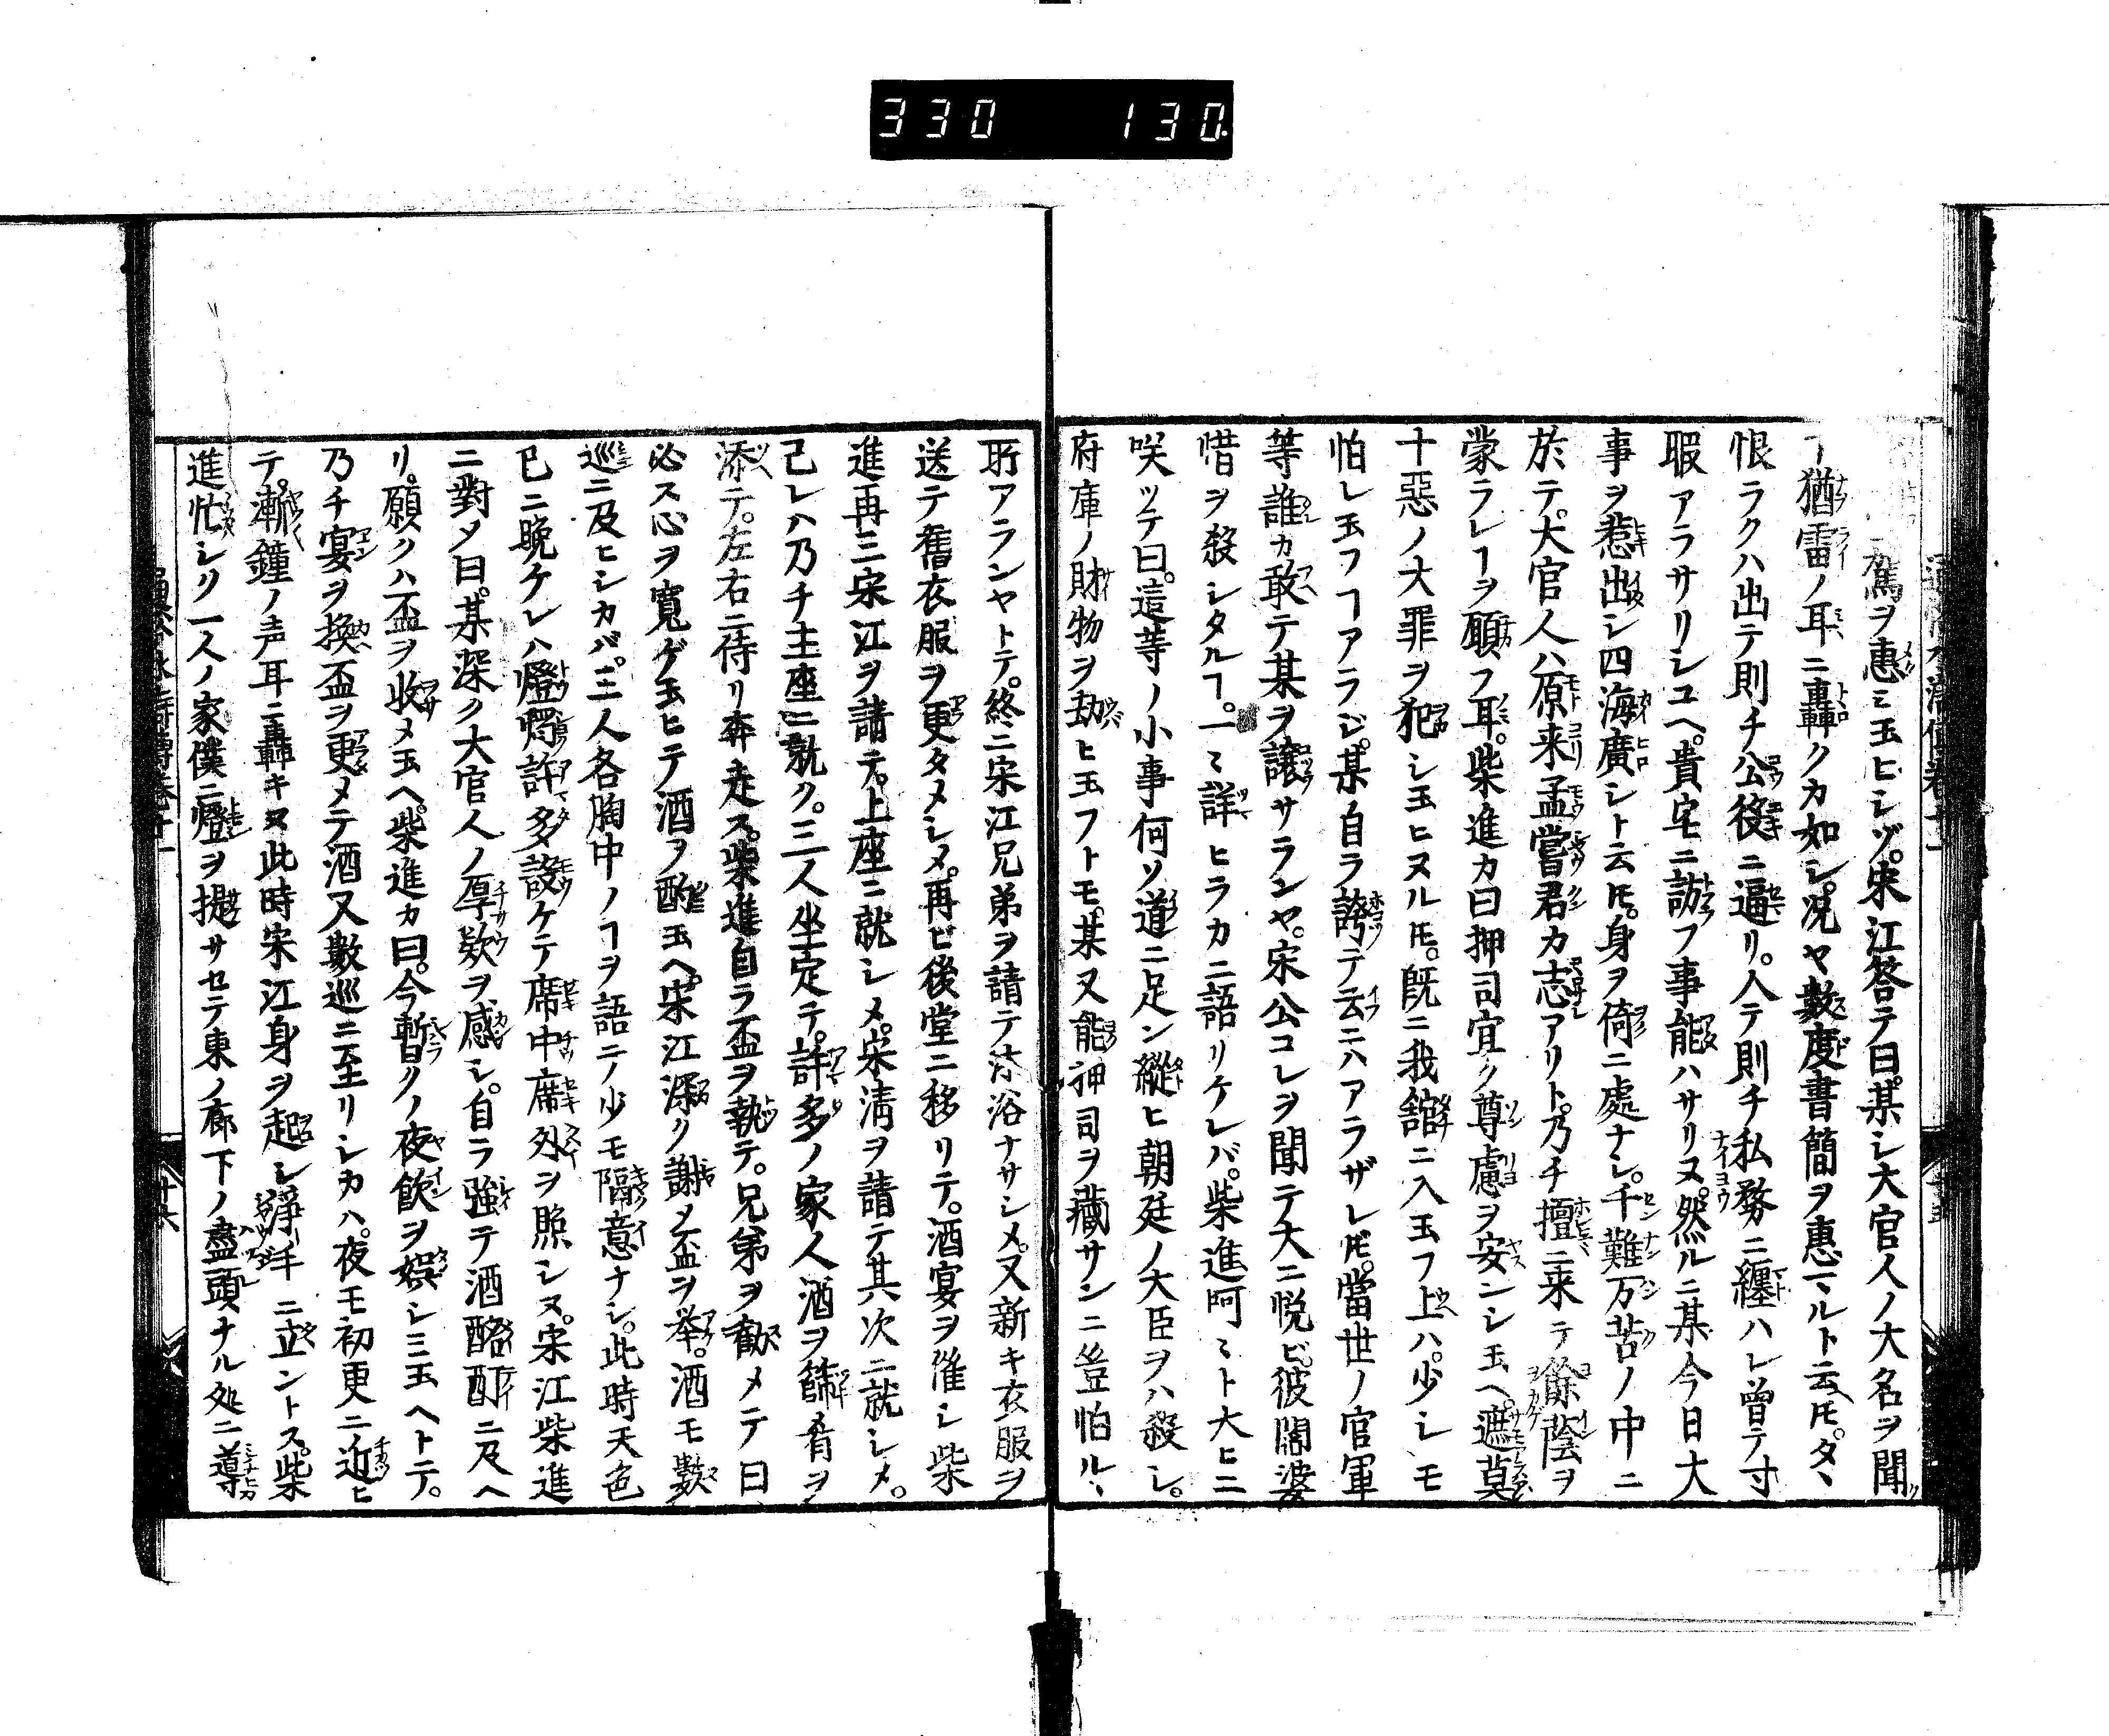 330 130
駕ヲ惠ミ玉ヒシゾ。宋江答テ曰。某シ大官人ノ大名ヲ聞
ヿ猶雷ノ耳ニ轟クカ如シ。况ヤ數度書簡ヲ惠マルト云ヘ𪜈。タヽ
恨ラクハ出テ則チ公役ニ逼リ。入テ則チ私務ニ纏ハレ曽テ寸
暇アラサリシユヘ。貴宅ニ訪フ事能ハサリヌ。然ルニ某今日大
事ヲ惹出シ四海廣シト云𪜈。身ヲ倚ニ處ナシ。千難万苦ノ中ニ
於テ。大官人ハ原来孟嘗君カ志アリト。乃チ擅ニ来テ餘蔭ヲ
蒙ラレヿヲ願フ耳。柴進カ曰押司宜ク尊慮ヲ安ンシ玉ヘ。遮莫
十惡ノ大罪ヲ犯シ玉ヒヌル𪜈。既ニ我舘ニ入玉フ上ハ。少シモ
怕レ玉フヿアラジ。某自ラ誇テ云ニハアラザレ𪜈。當世ノ官軍
等誰カ敢テ某ヲ譲サランヤ。宋公コレヲ聞テ大ニ悦ビ。彼閻婆
惜ヲ殺シタルヿ。一ミ詳ヒラカニ語リケレバ。柴進呵ミト大ヒニ
咲ッテ曰。這等ノ小事何ソ道ニ足ン縱ヒ朝廷ノ大臣ヲハ殺シ。
府庫ノ財物ヲ劫ヒ玉フトモ。某又能押司ヲ藏サンニ豈怕ルヽ
𫠦アランヤトテ。終ニ宋江兄弟ヲ請テ沐浴ナサシメ。又新キ衣服ヲ
送テ舊衣服ヲ更タメシメ。再ビ後堂ニ移リテ。酒宴ヲ催シ柴
進再三宋江ヲ請テ。上座ニ就シメ。宋清ヲ請テ其次ニ就シメ。
己レハ乃チ主座ニ就ク。三人坐定テ。許多ノ家人酒ヲ篩肴ヲ
添テ。左右ニ侍リ奔走ス。柴進自ラ盃ヲ執テ。兄弟ヲ勸メテ曰
必ス心ヲ寬ゲ玉ヒテ酒ヲ酌玉ヘ。宋江深ク謝メ盃ヲ举。酒モ數
巡ニ及ヒシカバ。三人各胸中ノヿヲ語ニテ少モ隔意ナシ。此時天色
已ニ晩ケレハ燈燭許多設ケテ席中席外ヲ照シヌ。宋江柴進
ニ對メ曰。某深ク大官人ノ厚欵ヲ感シ。自ラ強テ酒酩酊ニ及ヘ
リ。願クハ盃ヲ收メ玉ヘ。柴進カ曰。今暫クノ夜飲ヲ娯シミ玉ヘトテ。
乃チ宴ヲ換盃ヲ更メテ酒又數巡ニ至リシカハ。夜モ初更ニ近ヒ
テ。漸鐘ノ声耳ニ轟キヌ此時宋江身ヲ起シ淨手ニ立ントス。柴
進忙シク一人ノ家僕ニ燈ヲ提サセテ東ノ廊下ノ盡頭ナル処ニ導